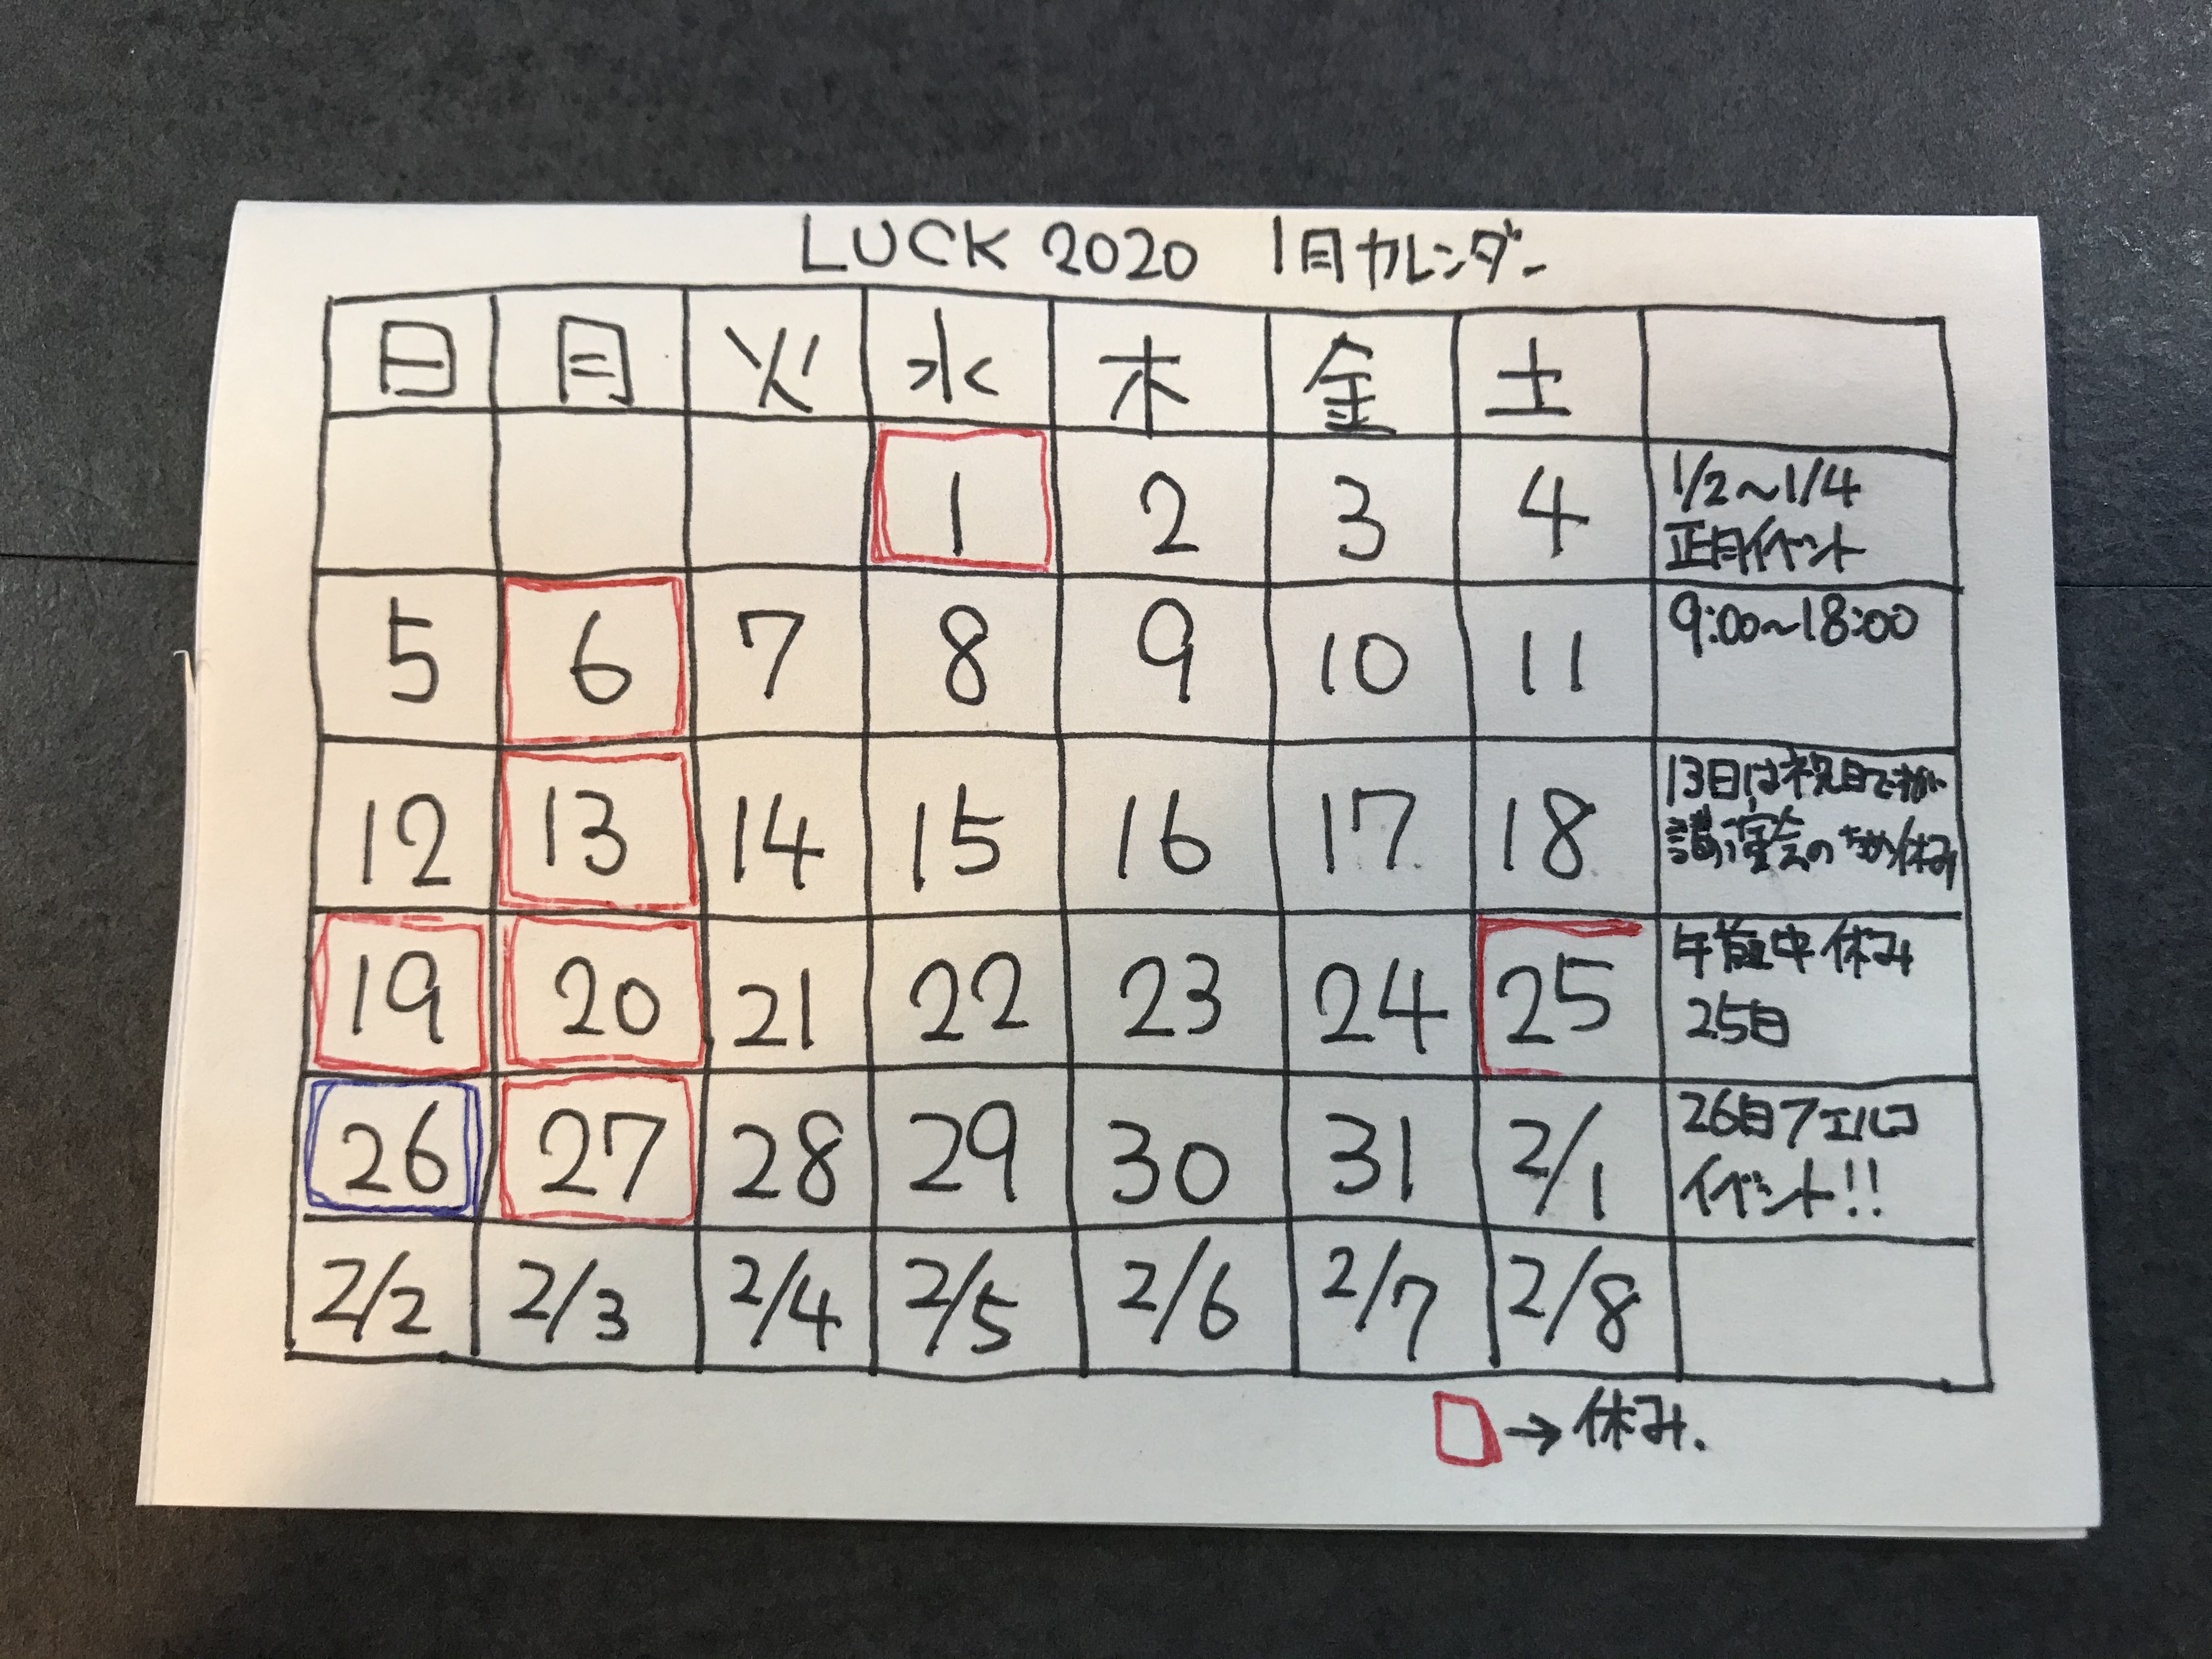 LUCK 2020 1月カレンダー
日 月 火 水 木 金 土
1 2 3 4 1/2〜1/4
正月イベント
5 6 7 8 9 10 11 9:00〜18:00
12 13 14 15 16 17 18 13日は祝日ですが
講演会のため休み
19 20 21 22 23 24 25 午前中休み
25日
26 27 28 29 30 31 2/1 26日フエルコ
イベント!!
2/2 2/3 2/4 2/5 2/6 2/7 2/8
→休み.